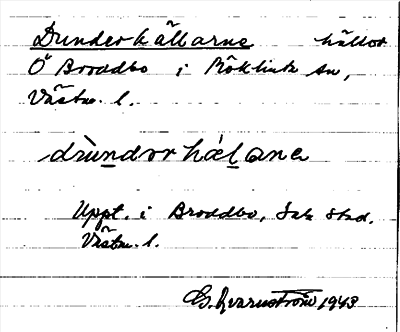 Dunderkällarne källor
Ö Broddbo i Möklinta sn,
Västm. l.
drùndor hæ̀lana
Uppt. i Broddbo, Sala stad.
Västm. l.
G. Qvarnström 1943